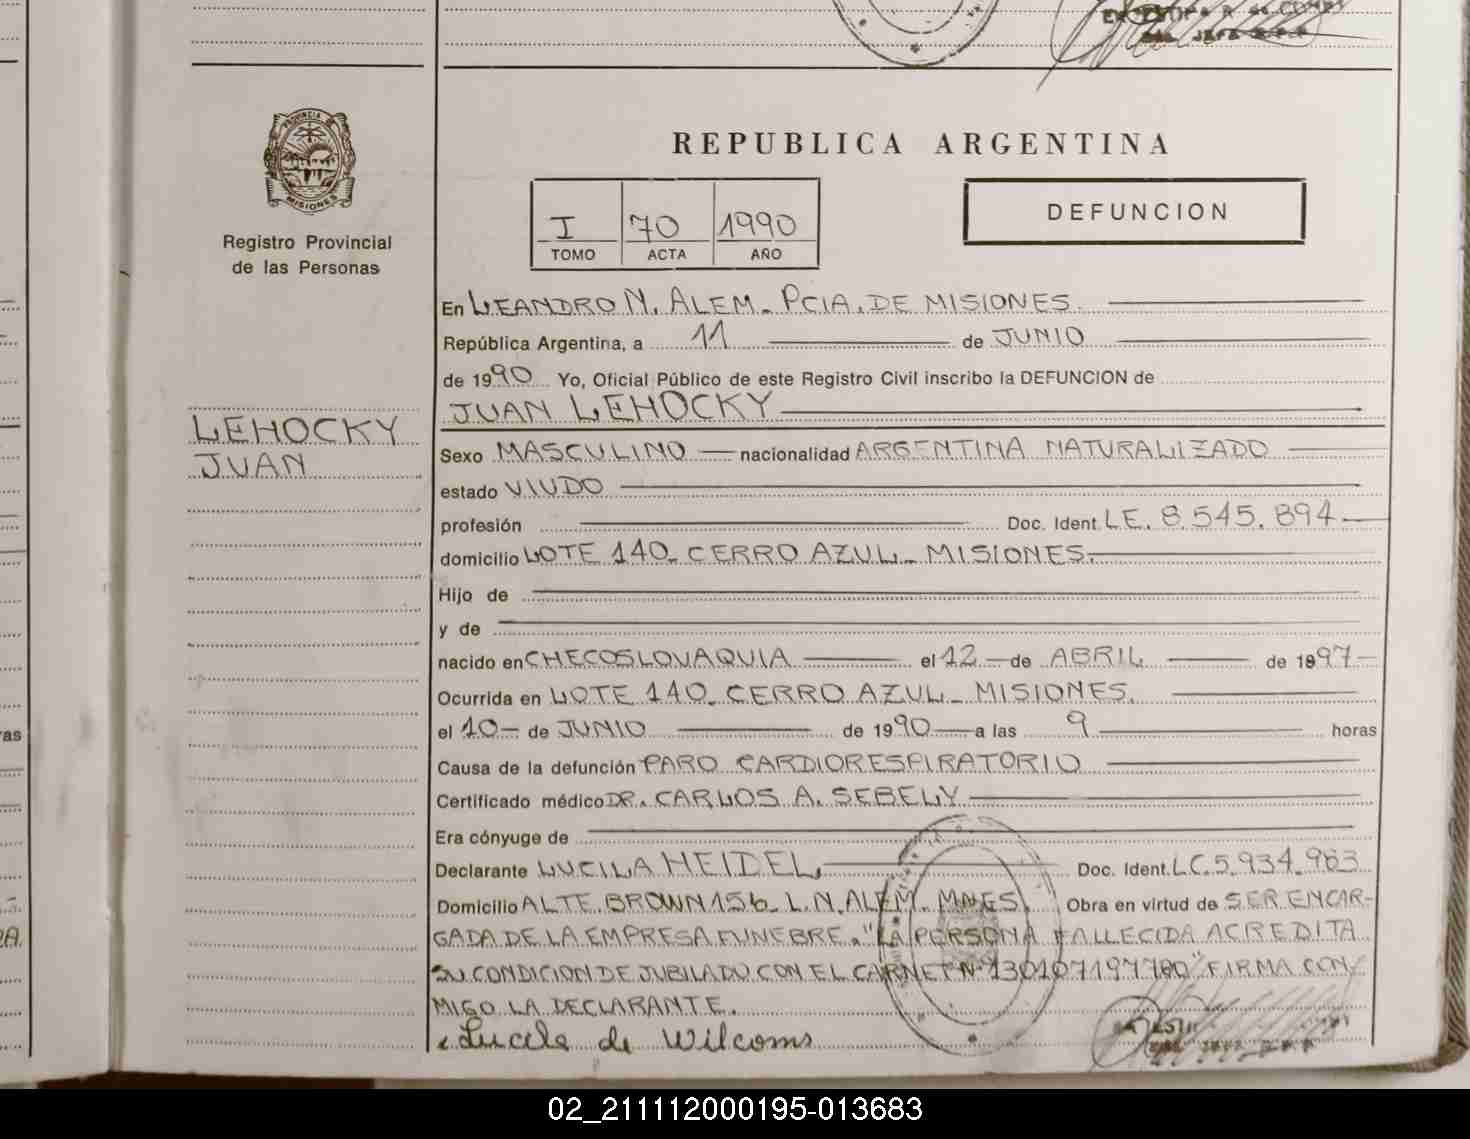 PROVINCIA DE
MISIONES
Registro Provincial
de las Personas
LEHOCKY
JUAN
REPUBLICA ARGENTINA
I 70 1990
TOMO ACTA AÑO
DEFUNCION
En LEANDRO N. ALEM. PCIA. DE MISIONES.
República Argentina, a 11 de JUNIO
de 1990 Yo, Oficial Público de este Registro Civil inscribo la DEFUNCION de
JUAN LEHOCKY
Sexo MASCULINO nacionalidad ARGENTINA NATURALIZADO
estado VIUDO
profesión Doc. Ident. LE. 8.545.894
domicilio LOTE 140. CERRO AZUL. MISIONES.
Hijo de
y de
nacido en CHECOSLOVAQUIA el 12 de ABRIL de 1897
Ocurrida en LOTE 140. CERRO AZUL. MISIONES.
el 10 de JUNIO de 1990 a las 9 horas
Causa de la defunción PARO CARDIORESPIRATORIO
Certificado médico DR. CARLOS A. SEBELY
Era cónyuge de
Declarante LUCILA HEIDEL, Doc. Ident. LC. 5.934.963
Domicilio ALTE. BROWN 156. L.N. ALEM. MNES. Obra en virtud de SER ENCAR-
GADA DE LA EMPRESA FUNEBRE. "LA PERSONA FALLECIDA ACREDITA
SU CONDICION DE JUBILADO CON EL CARNET Nº FIRMA CON
MIGO LA DECLARANTE.
Lucila de Wilcoms
02_211112000195-013683